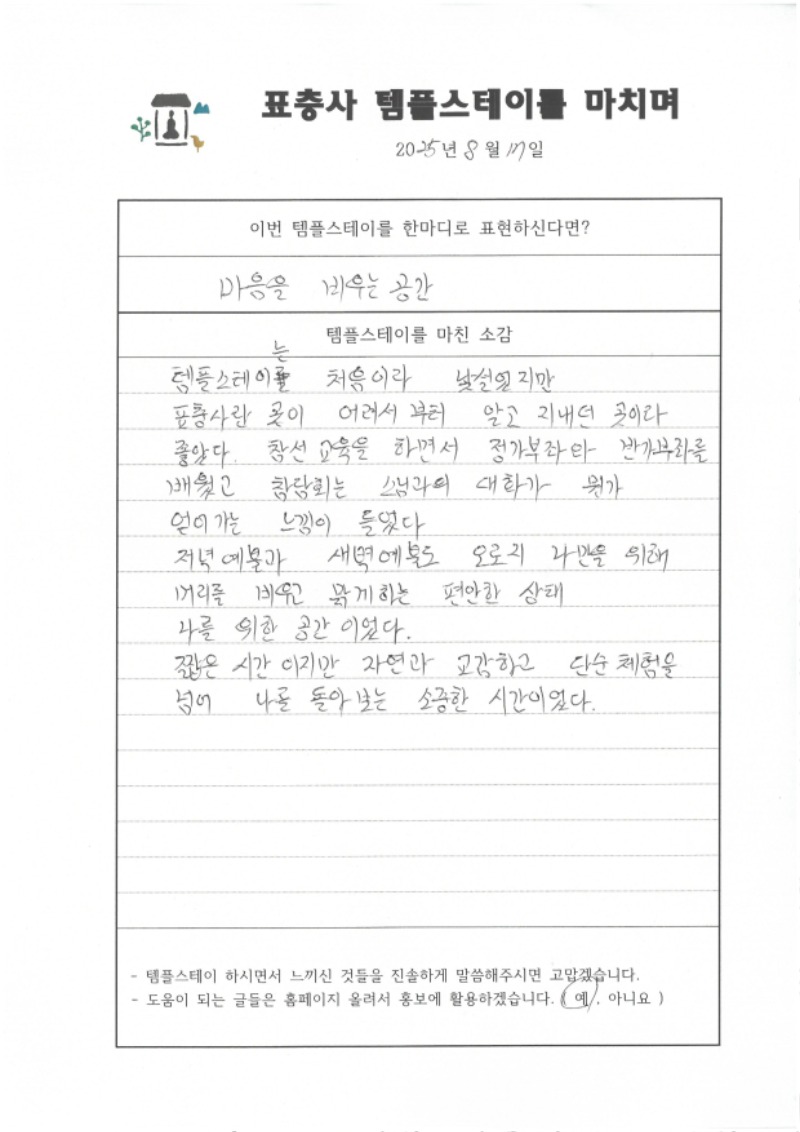 표충사 템플스테이를 마치며
2025년 8월 17일
이번 템플스테이를 한마디로 표현하신다면?
마음을 비우는 공간
템플스테이를 마친 소감
템플스테이는 처음이라 낯설었지만
표충사란 곳이 어려서부터 알고 지내던 곳이라
좋았다. 참선 교육을 하면서 정가부좌와 반가부좌를
배웠고 참담회는 스님과의 대화가 뭔가
얻어가는 느낌이 들었다
저녁예불과 새벽예불도 오로지 나만을 위해
머리를 비우고 맑게하는 편안한 상태
나를 위한 공간이었다.
짧은 시간이지만 자연과 교감하고 단순체험을
넘어 나를 돌아보는 소중한 시간이었다.
- 템플스테이 하시면서 느끼신 것들을 진솔하게 말씀해주시면 고맙겠습니다.
- 도움이 되는 글들은 홈페이지 올려서 홍보에 활용하겠습니다. ( 예 , 아니요 )